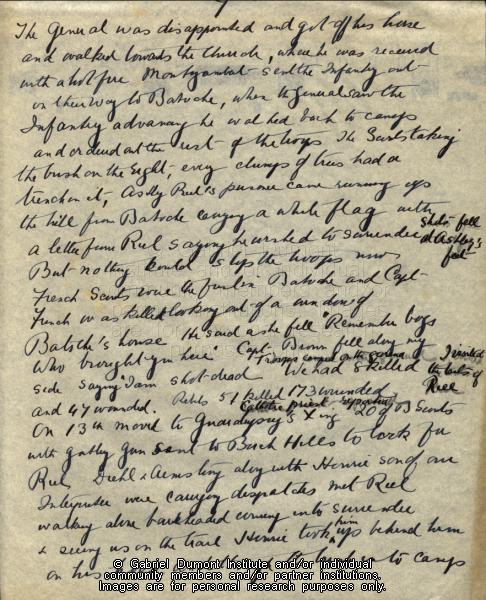 The General was disappointed and got off his horse
and walked towards the Church, where he was received
with a hot fire Montyambert sent the Infantry out
on their way to Batoche, when the General saw the
Infantry advancing he walked back to camp
and ordered out the rest of the troops The Scouts taking
the bush on the right, every clump of trees had a
trench in it, Astly Riel's prisoner came running up
the hill from Batoche carrying a white flag with
a letter from Riel saying he wished to surrender
Shots fell at Ashley's feet
But nothing could stop the troops now
French Scouts were the first in Batoche and Capt
French was killed looking out of a window of
Batoche's house He said as he fell "Remember boys
who brought you here" Capt Brown fell along my
side saying I am shot dead We had 8 killed
Troops camped on the ground
the hut of Riel
and 47 wounded. Rebels 51 killed 173 wounded
Catholic priest reported
On 13th moved to Guardupuy's Xing 20 of B Scouts
with gatling gun sent to Birch Hills to look for
Riel, Diehl & Armstrong along with Henrie son of our
Interpreter were carrying dispatches met Riel
walking alone bareheaded coming into surrender
& seeing us on the trail Henrie took him up behind him
on his to camp
© Gabriel Dumont Institute and/or individual
community members and/or partner institutions.
Images are for personal research purposes only.